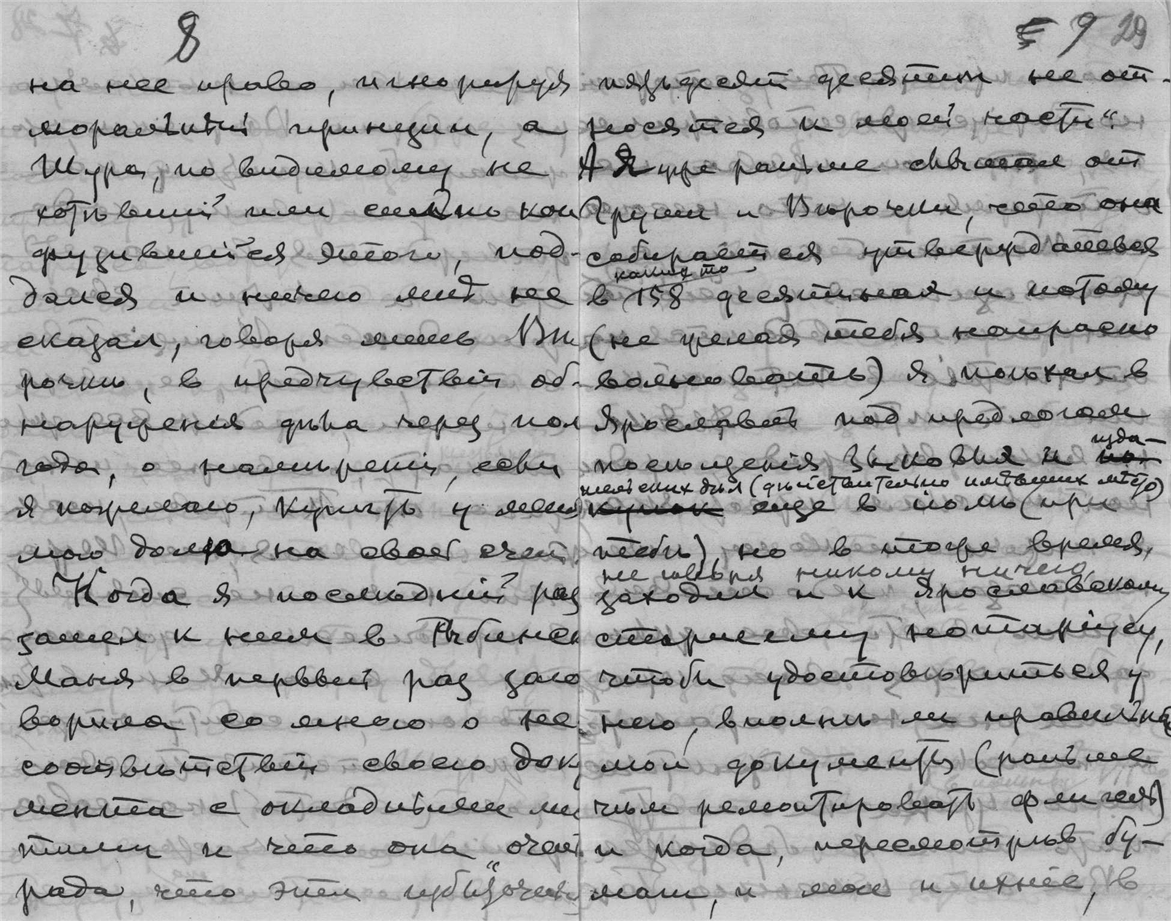 8
на нее право, игнорируя
моральный принцип, а
Шура, по видимому не
хотѣвшій или сильно кон
фузившійся этого, под-
дался и ничего мнѣ не
сказал, говоря лишь Вѣ
рочкѣ, в предчувствіи об-
наруженія дѣла через пол
года, о намѣреніи, если
я пожелаю, купить у меня
мою долю на свой счет.
Когда я послѣдній раз
зашел к ним в Рыбинск
Маня в первый раз заго
ворила со мною о не-
соотвѣтствіи своего доку
мента с окладными ли
стами и что она очень
рада, что эти
9 29
пятьдесят десятин не от-
носятся к моей части".
А я уже раньше слышал от
Груши и Вѣрочки, что она
собирается утверждаться
каких то
в 158 десятинах и потому
(не желая тебя напрасно
волновать) я поѣхал в
Ярославль под предлогом
изда-
посѣщенія и
тельских дѣл (дѣйствительно имѣвших мѣсто)
еще в іюль (при
тебѣ) но в тоже время,
не говоря никому ничего,
заходил и к Ярославскому
старшему нотаріусу,
чтобы удостовѣриться у
него, вполнѣ ли правильны
мои документы (раньше
чѣм ремонтировать флигеля)
и когда, пересмотрѣв бу-
маги, и мои и ихнія, в